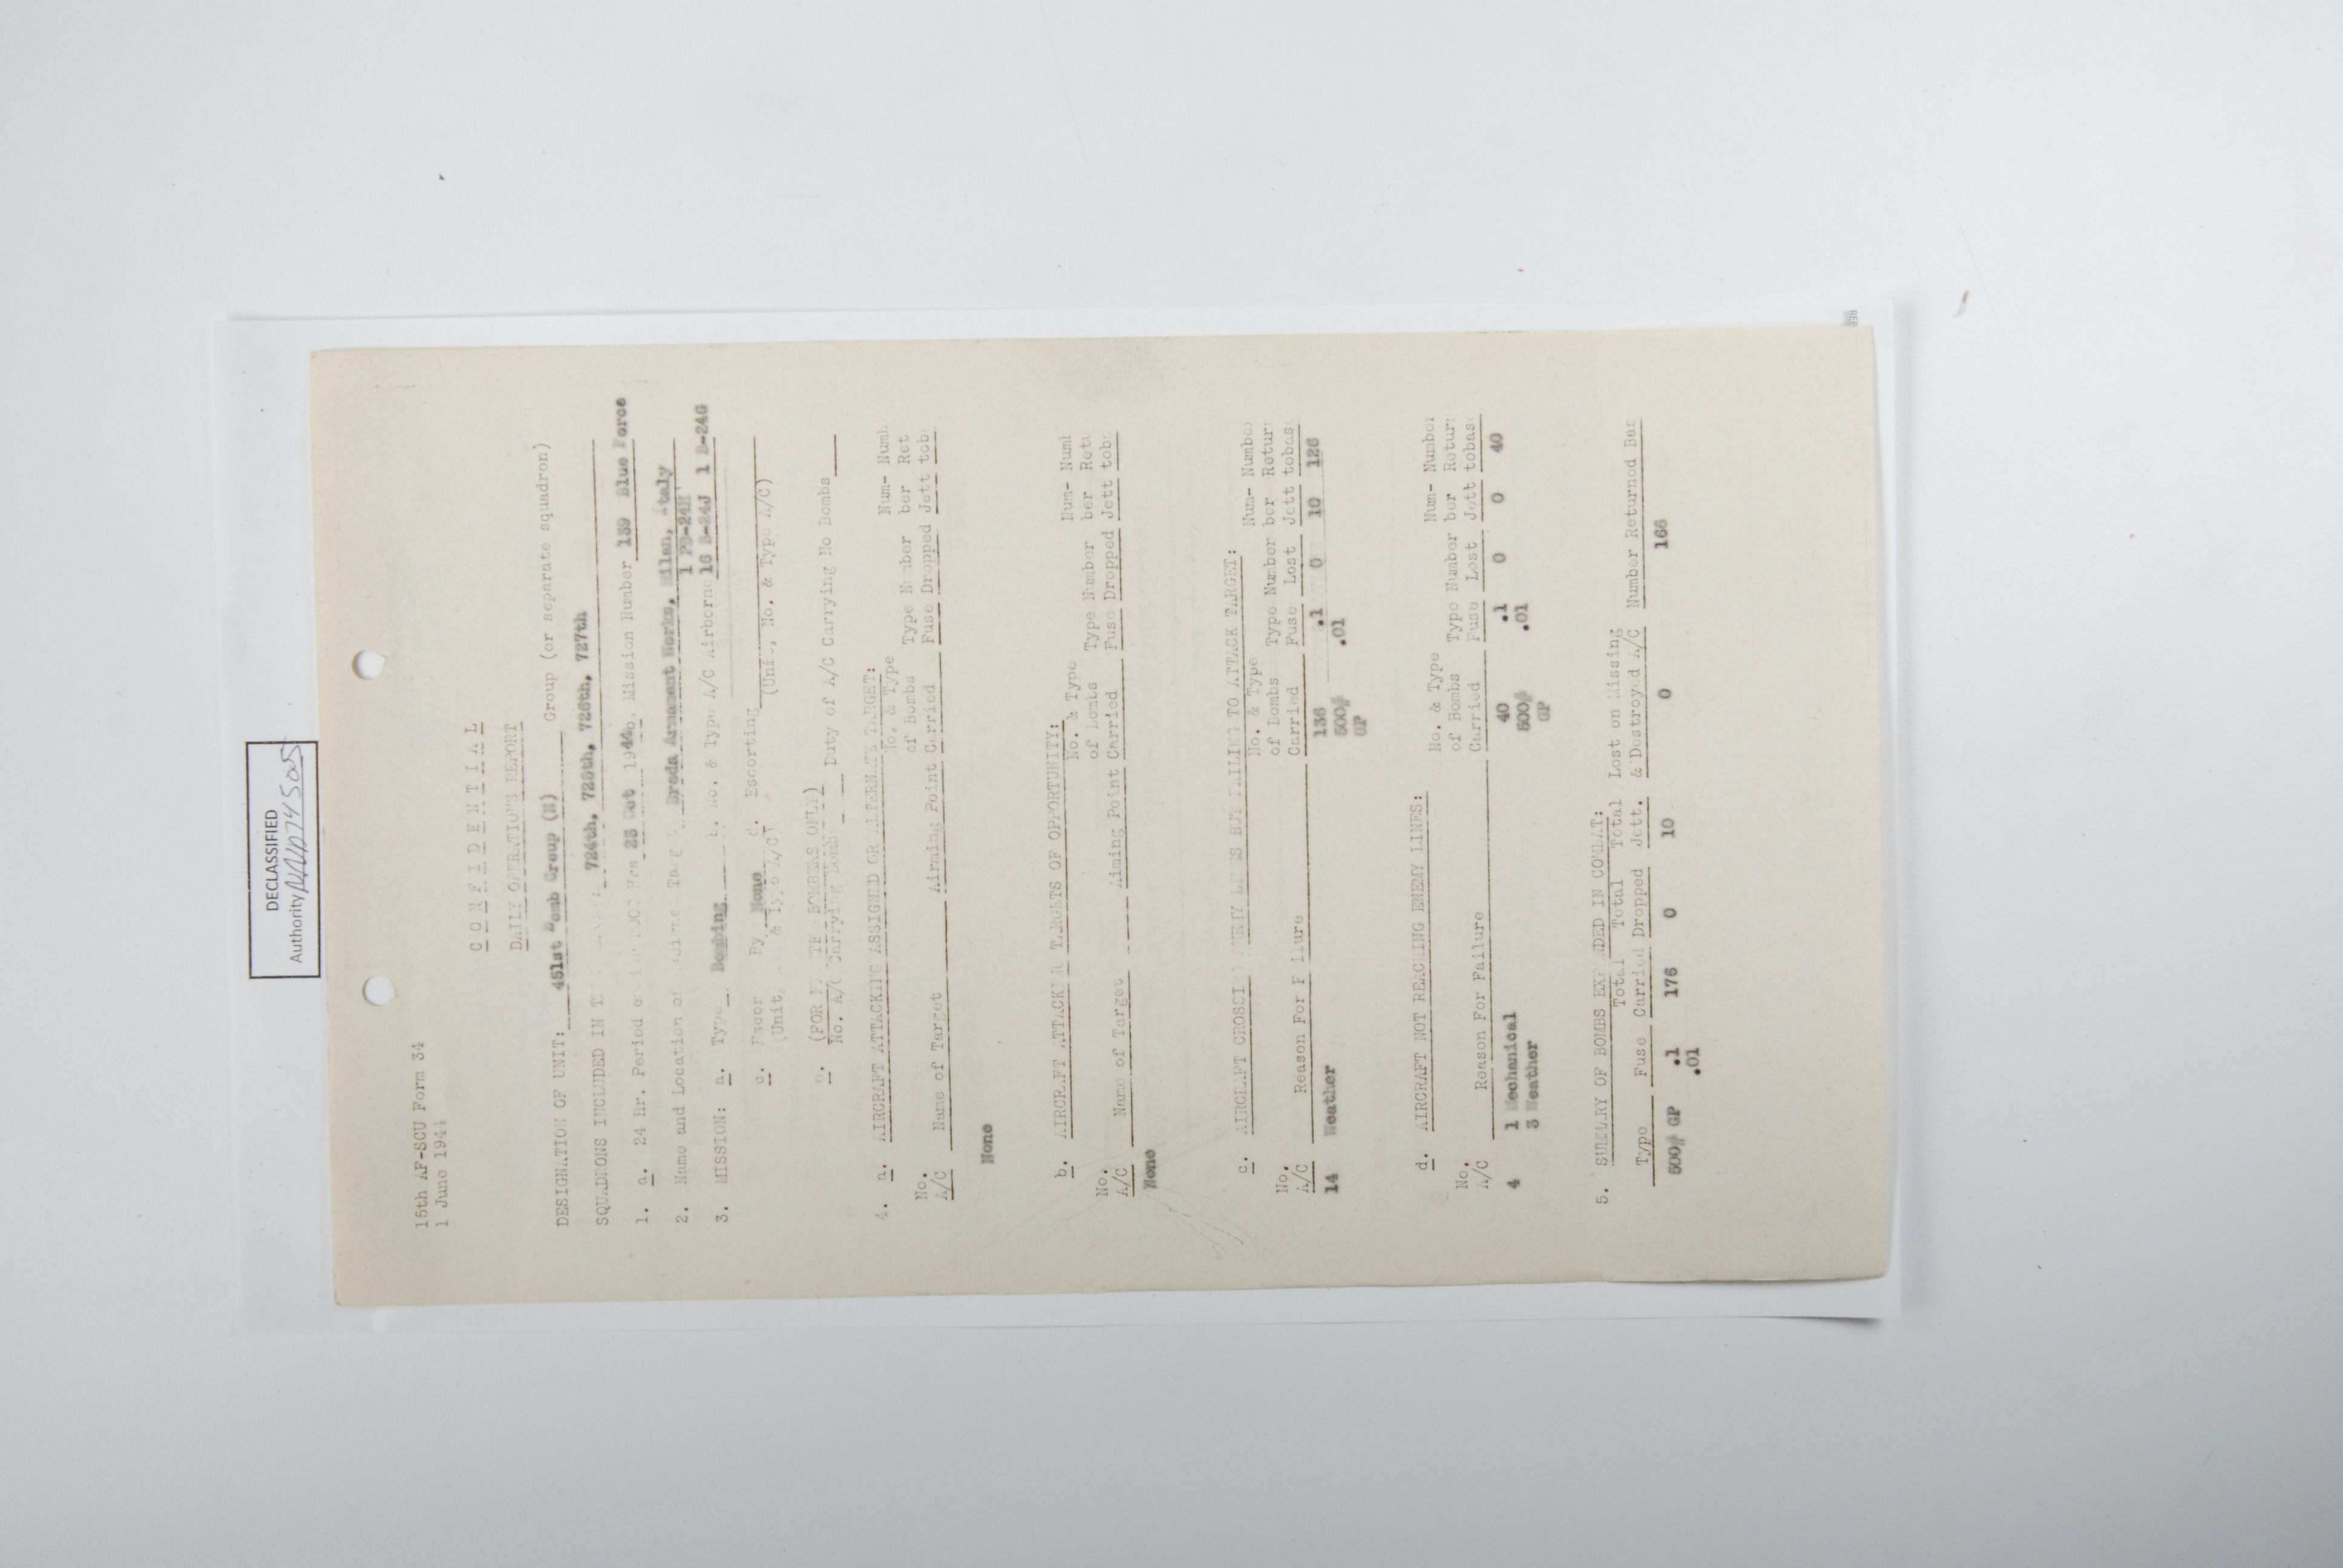 DECLASSIFIED
Authority NND 745005
15th AF-SCU Form 34
1 June 1944
C O N F I D E N T I A L
DAILY OPERATIONS REPORT
DESIGNATION OF UNIT: 451st Bomb Group (H) Group (or separate squadron)
SQUADRONS INCLUDED IN 724th, 725th, 726th, 727th
1. a. 24 Hr. Period 23 Oct 1944b. Mission Number 139 Blue Force
2. Name and Location of Breda Armament Works, Milan, Italy
1 PB-24H
3. MISSION: a. Type Bombing b. No. & Type A/C Airborne 16 B-24J 1 B-24G
c. Escor By None d. Escorting
(Unit, & Type A/C) (Unit, No. & Type A/C)
e. (FOR BOMBERS ONLY)
No. A/C Carrying Bombs Duty of A/C Carrying No Bombs
4. a. AIRCRAFT ATTACKING ASSIGNED OR ALTERNATE TARGET:
No. & Type Num- Numb
No. of Bombs Type Number ber Ret
A/C Name of Target Aiming Point Carried Fuse Dropped Jett tob
None
b. AIRCRAFT ATTACKING TARGETS OF OPPORTUNITY:
No. & Type Num- Numb
No. of Bombs Type Number ber Retu
A/C Name of Target Aiming Point Carried Fuse Dropped Jett tob
None
c. AIRCRAFT CROSSING ENEMY LINES BUT FAILING TO ATTACK TARGET:
No. & Type Num- Number
No. of Bombs Type Number ber Return
A/C Reason For Failure Carried Fuse Lost Jett tobase
14 Weather 136 .1 0 10 126
500# .01
GP
d. AIRCRAFT NOT REACHING ENEMY LINES:
No. & Type Num- Number
No. of Bombs Type Number ber Return
A/C Reason For Failure Carried Fuse Lost Jett tobase
4 1 Mechanical 40 .1 0 0 40
3 Weather 500# .01
GP
5. SUMMARY OF BOMBS EXPENDED IN COMBAT:
Total Total Total Lost on Missing
Type Fuse Carried Dropped Jett. & Destroyed A/C Number Returned Bas
500# GP .1 176 0 10 0 166
.01